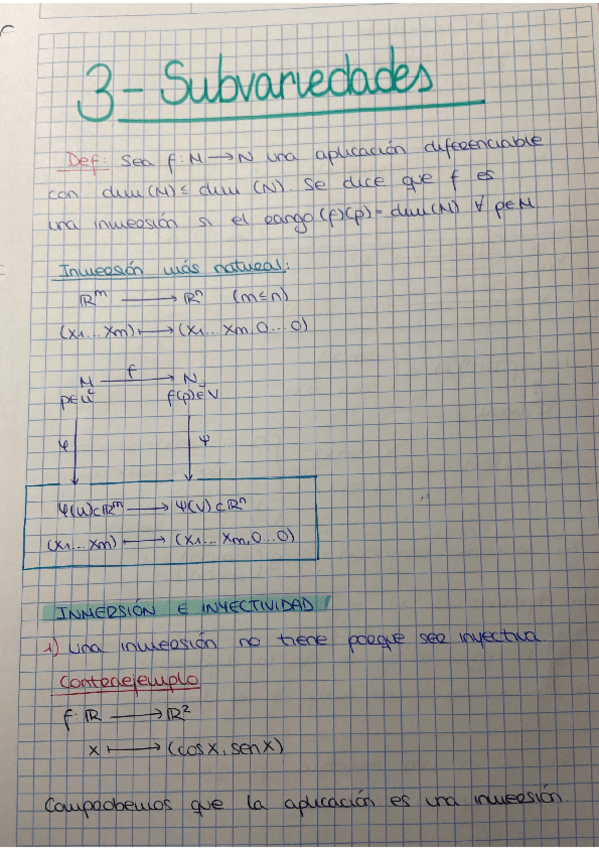 3- Subvariedades
Def: Sea f: M → N una aplicación diferenciable
con dim (M) ≤ dim (N). Se dice que f es
una inmersión si el rango (f)(p) = dim (M) ∀ p∈M
Inmersión más natural:
ℝᵐ → ℝⁿ (m≤n)
(x₁... xm) ↦ (x₁... xm, 0...0)
M f→ N
p∈U f(p)∈V
φ ψ
φ(U)⊂ℝᵐ → ψ(V)⊂ℝⁿ
(x₁... xm) ↦ (x₁... xm, 0...0)
INMERSIÓN E INYECTIVIDAD
1) Una inmersión no tiene porque ser inyectiva.
Contraejemplo
f: ℝ → ℝ²
x ↦ (cosx, senx)
Comprobemos que la aplicación es una inmersión.